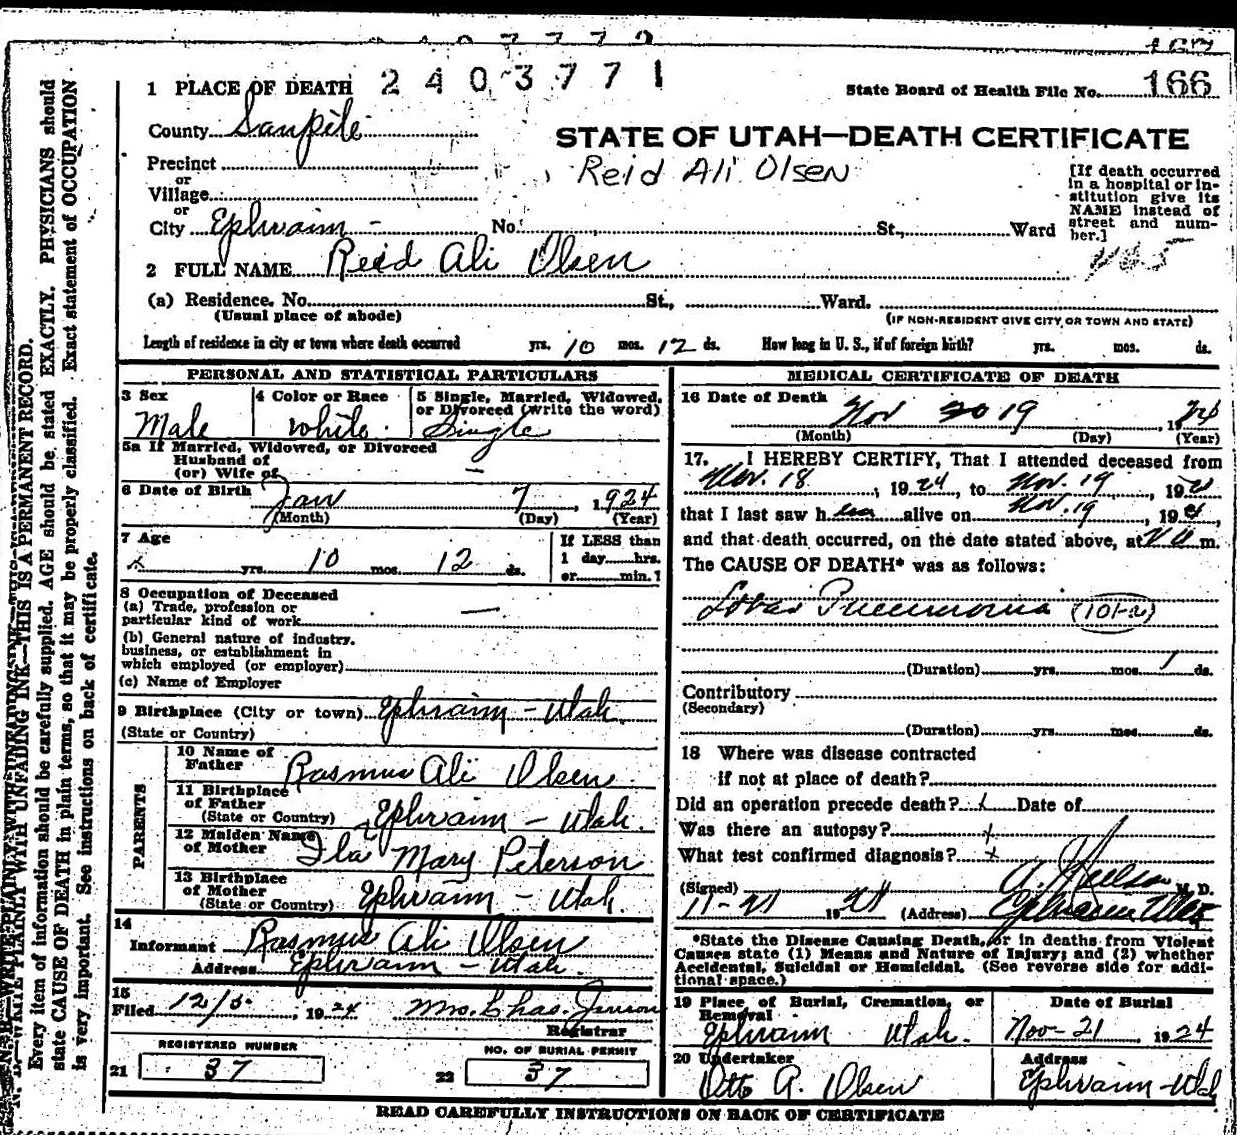 2403771
166
1 PLACE OF DEATH
State Board of Health File No. 166
County Sanpete
STATE OF UTAH—DEATH CERTIFICATE
Reid Ali Olsen
Precinct
or
Village
or
City Ephraim - No. St., Ward
[If death occurred
in a hospital or in-
stitution give its
NAME instead of
street and num-
ber.]
2 FULL NAME Reid Ali Olsen
(a) Residence. No. St., Ward.
(Usual place of abode)
(IF NON-RESIDENT GIVE CITY OR TOWN AND STATE)
Length of residence in city or town where death occurred yrs. 10 mos. 12 ds. How long in U. S., if of foreign birth? yrs. mos. ds.
PERSONAL AND STATISTICAL PARTICULARS
3 Sex
Male
4 Color or Race
White
5 Single, Married, Widowed,
or Divorced (write the word)
Single
5a If Married, Widowed, or Divorced
Husband of
(or) Wife of —
6 Date of Birth Jan 7, 1924
(Month) (Day) (Year)
7 Age
x yrs. 10 mos. 12 ds.
If LESS than
1 day hrs.
or min. ?
8 Occupation of Deceased
(a) Trade, profession or
particular kind of work —
(b) General nature of industry,
business, or establishment in
which employed (or employer)
(c) Name of Employer
9 Birthplace (City or town) Ephraim - Utah.
(State or Country)
PARENTS
10 Name of
Father Rasmus Ali Olsen
11 Birthplace
of Father
(State or Country) Ephraim - Utah.
12 Maiden Name
of Mother Ila Mary Peterson
13 Birthplace
of Mother
(State or Country) Ephraim - Utah.
14
Informant Rasmus Ali Olsen
Address Ephraim - Utah.
15
Filed 12/5, 1924 Mrs. Chas. Jenson
Registrar
REGISTERED NUMBER
21 37
NO. OF BURIAL PERMIT
22 37
MEDICAL CERTIFICATE OF DEATH
16 Date of Death
Nov 19, 1924
(Month) (Day) (Year)
17. I HEREBY CERTIFY, That I attended deceased from
Nov. 18, 1924, to Nov. 19, 192
that I last saw h alive on Nov. 19, 192,
and that death occurred, on the date stated above, at m.
The CAUSE OF DEATH* was as follows:
Lobar Pneumonia (101-a)
(Duration) yrs. mos. 1 ds.
Contributory
(Secondary)
(Duration) yrs. mos. ds.
18 Where was disease contracted
if not at place of death?
Did an operation precede death? x Date of
Was there an autopsy? x
What test confirmed diagnosis? x
(Signed) M. D.
11-21 19 (Address) Ephraim Utah
*State the Disease Causing Death, or in deaths from Violent
Causes state (1) Means and Nature of Injury; and (2) whether
Accidental, Suicidal or Homicidal. (See reverse side for addi-
tional space.)
19 Place of Burial, Cremation, or
Removal
Ephraim Utah.
Date of Burial
Nov-21 1924
20 Undertaker
Otto A. Olsen
Address
Ephraim - Utah
READ CAREFULLY INSTRUCTIONS ON BACK OF CERTIFICATE
Every item of information should be carefully supplied. AGE should be stated EXACTLY. PHYSICIANS should
state CAUSE OF DEATH in plain terms, so that it may be properly classified. Exact statement of OCCUPATION
is very important. See instructions on back of certificate.
WRITE PLAINLY WITH UNFADING INK—THIS IS A PERMANENT RECORD.